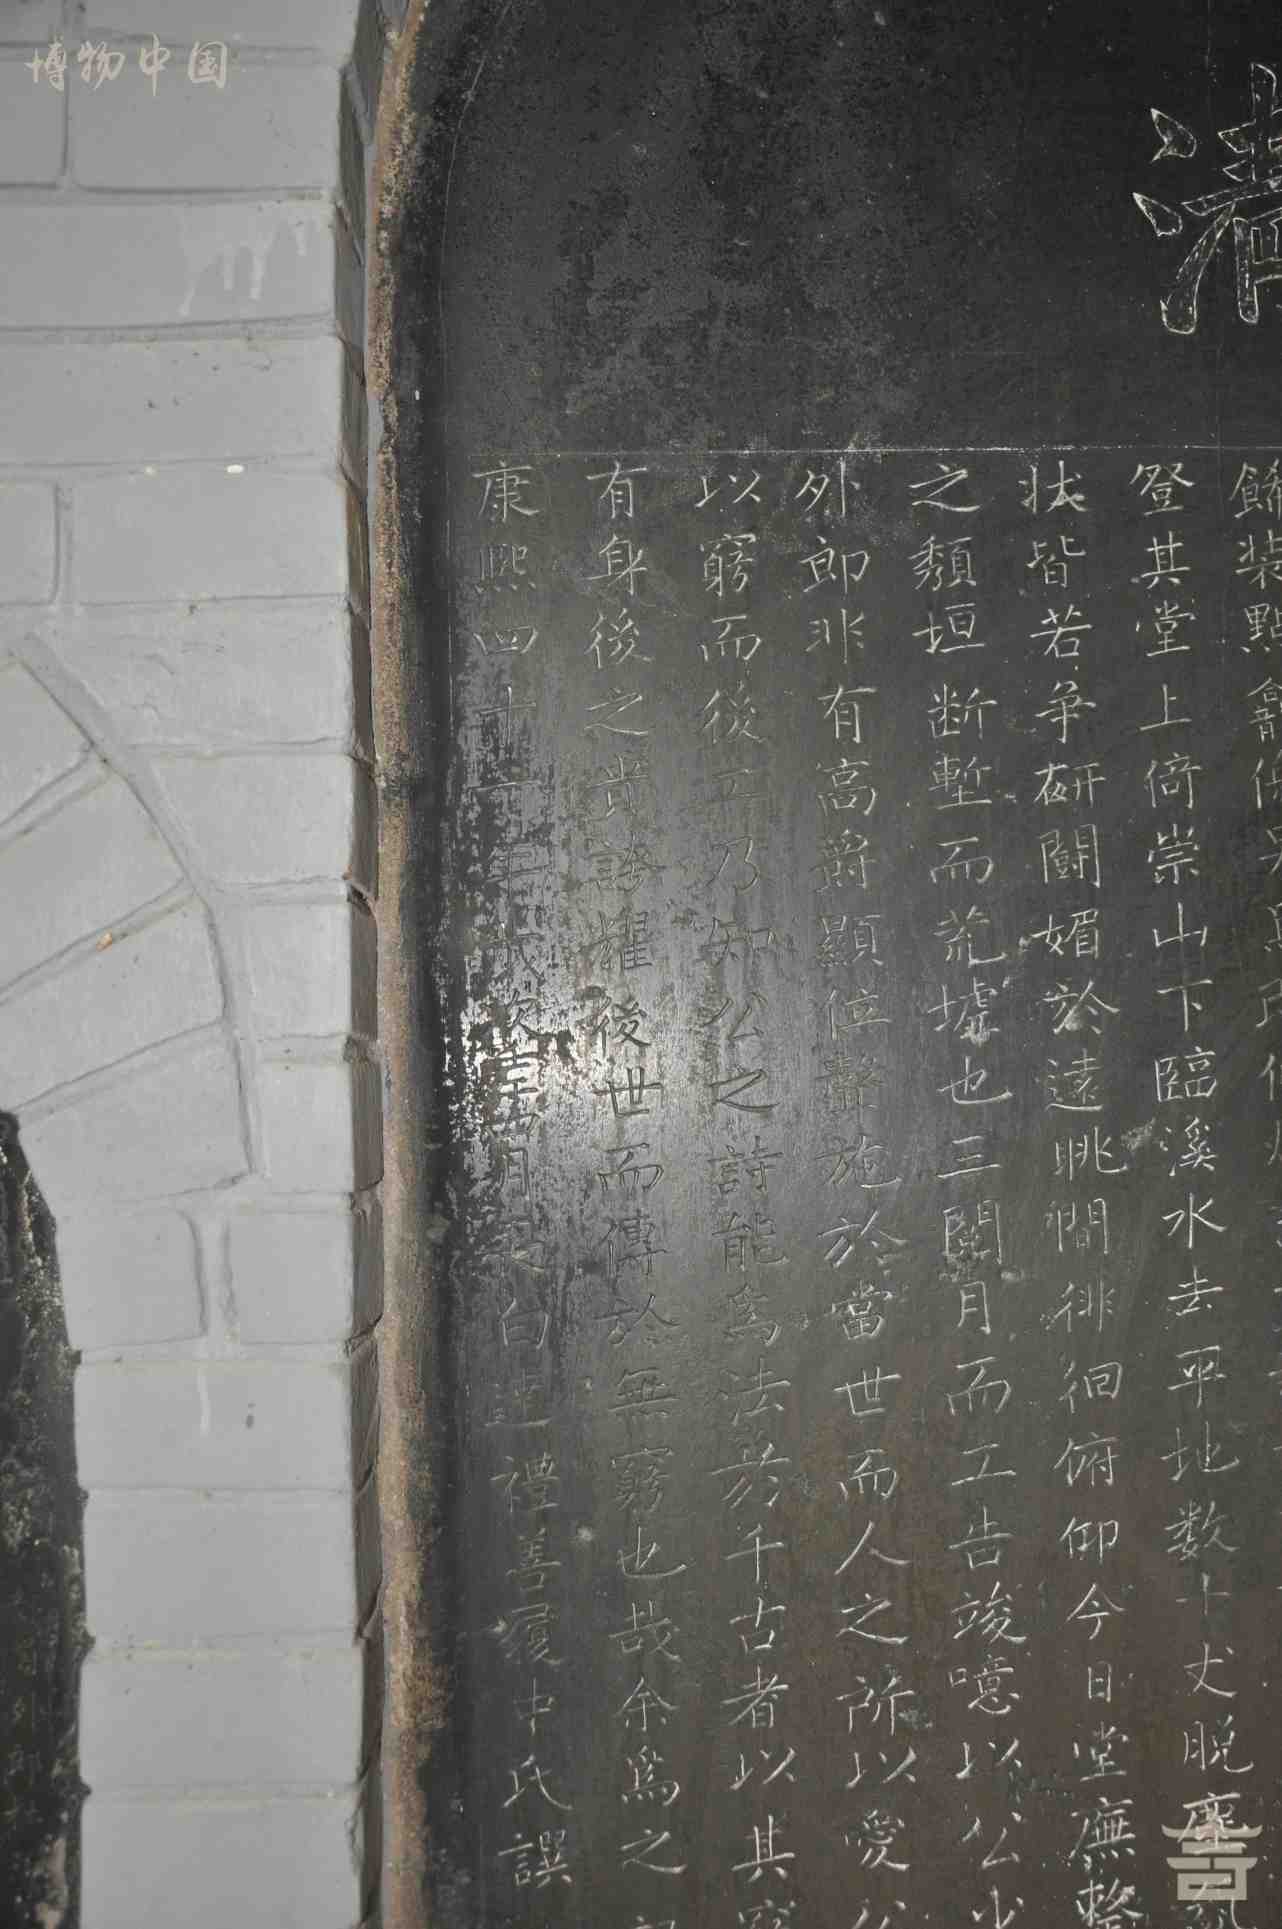 博物中国
清
登其堂上倚崇山下臨溪水去平地数十丈脱塵
状皆若爭妍鬪媚於遠眺間徘徊俯仰今日堂廡整
之頽垣断塹而荒墟也三閲月而工告竣噫以公
外郎非有高爵顯位聲施於當世而人之所以愛
以窮而後工乃知公之詩能為法於千古者以其窮
有身後之 誇耀後世而傳於無窮也哉余為之
康熙四十一年歲次壬午 月 白 禮善 中氏譔